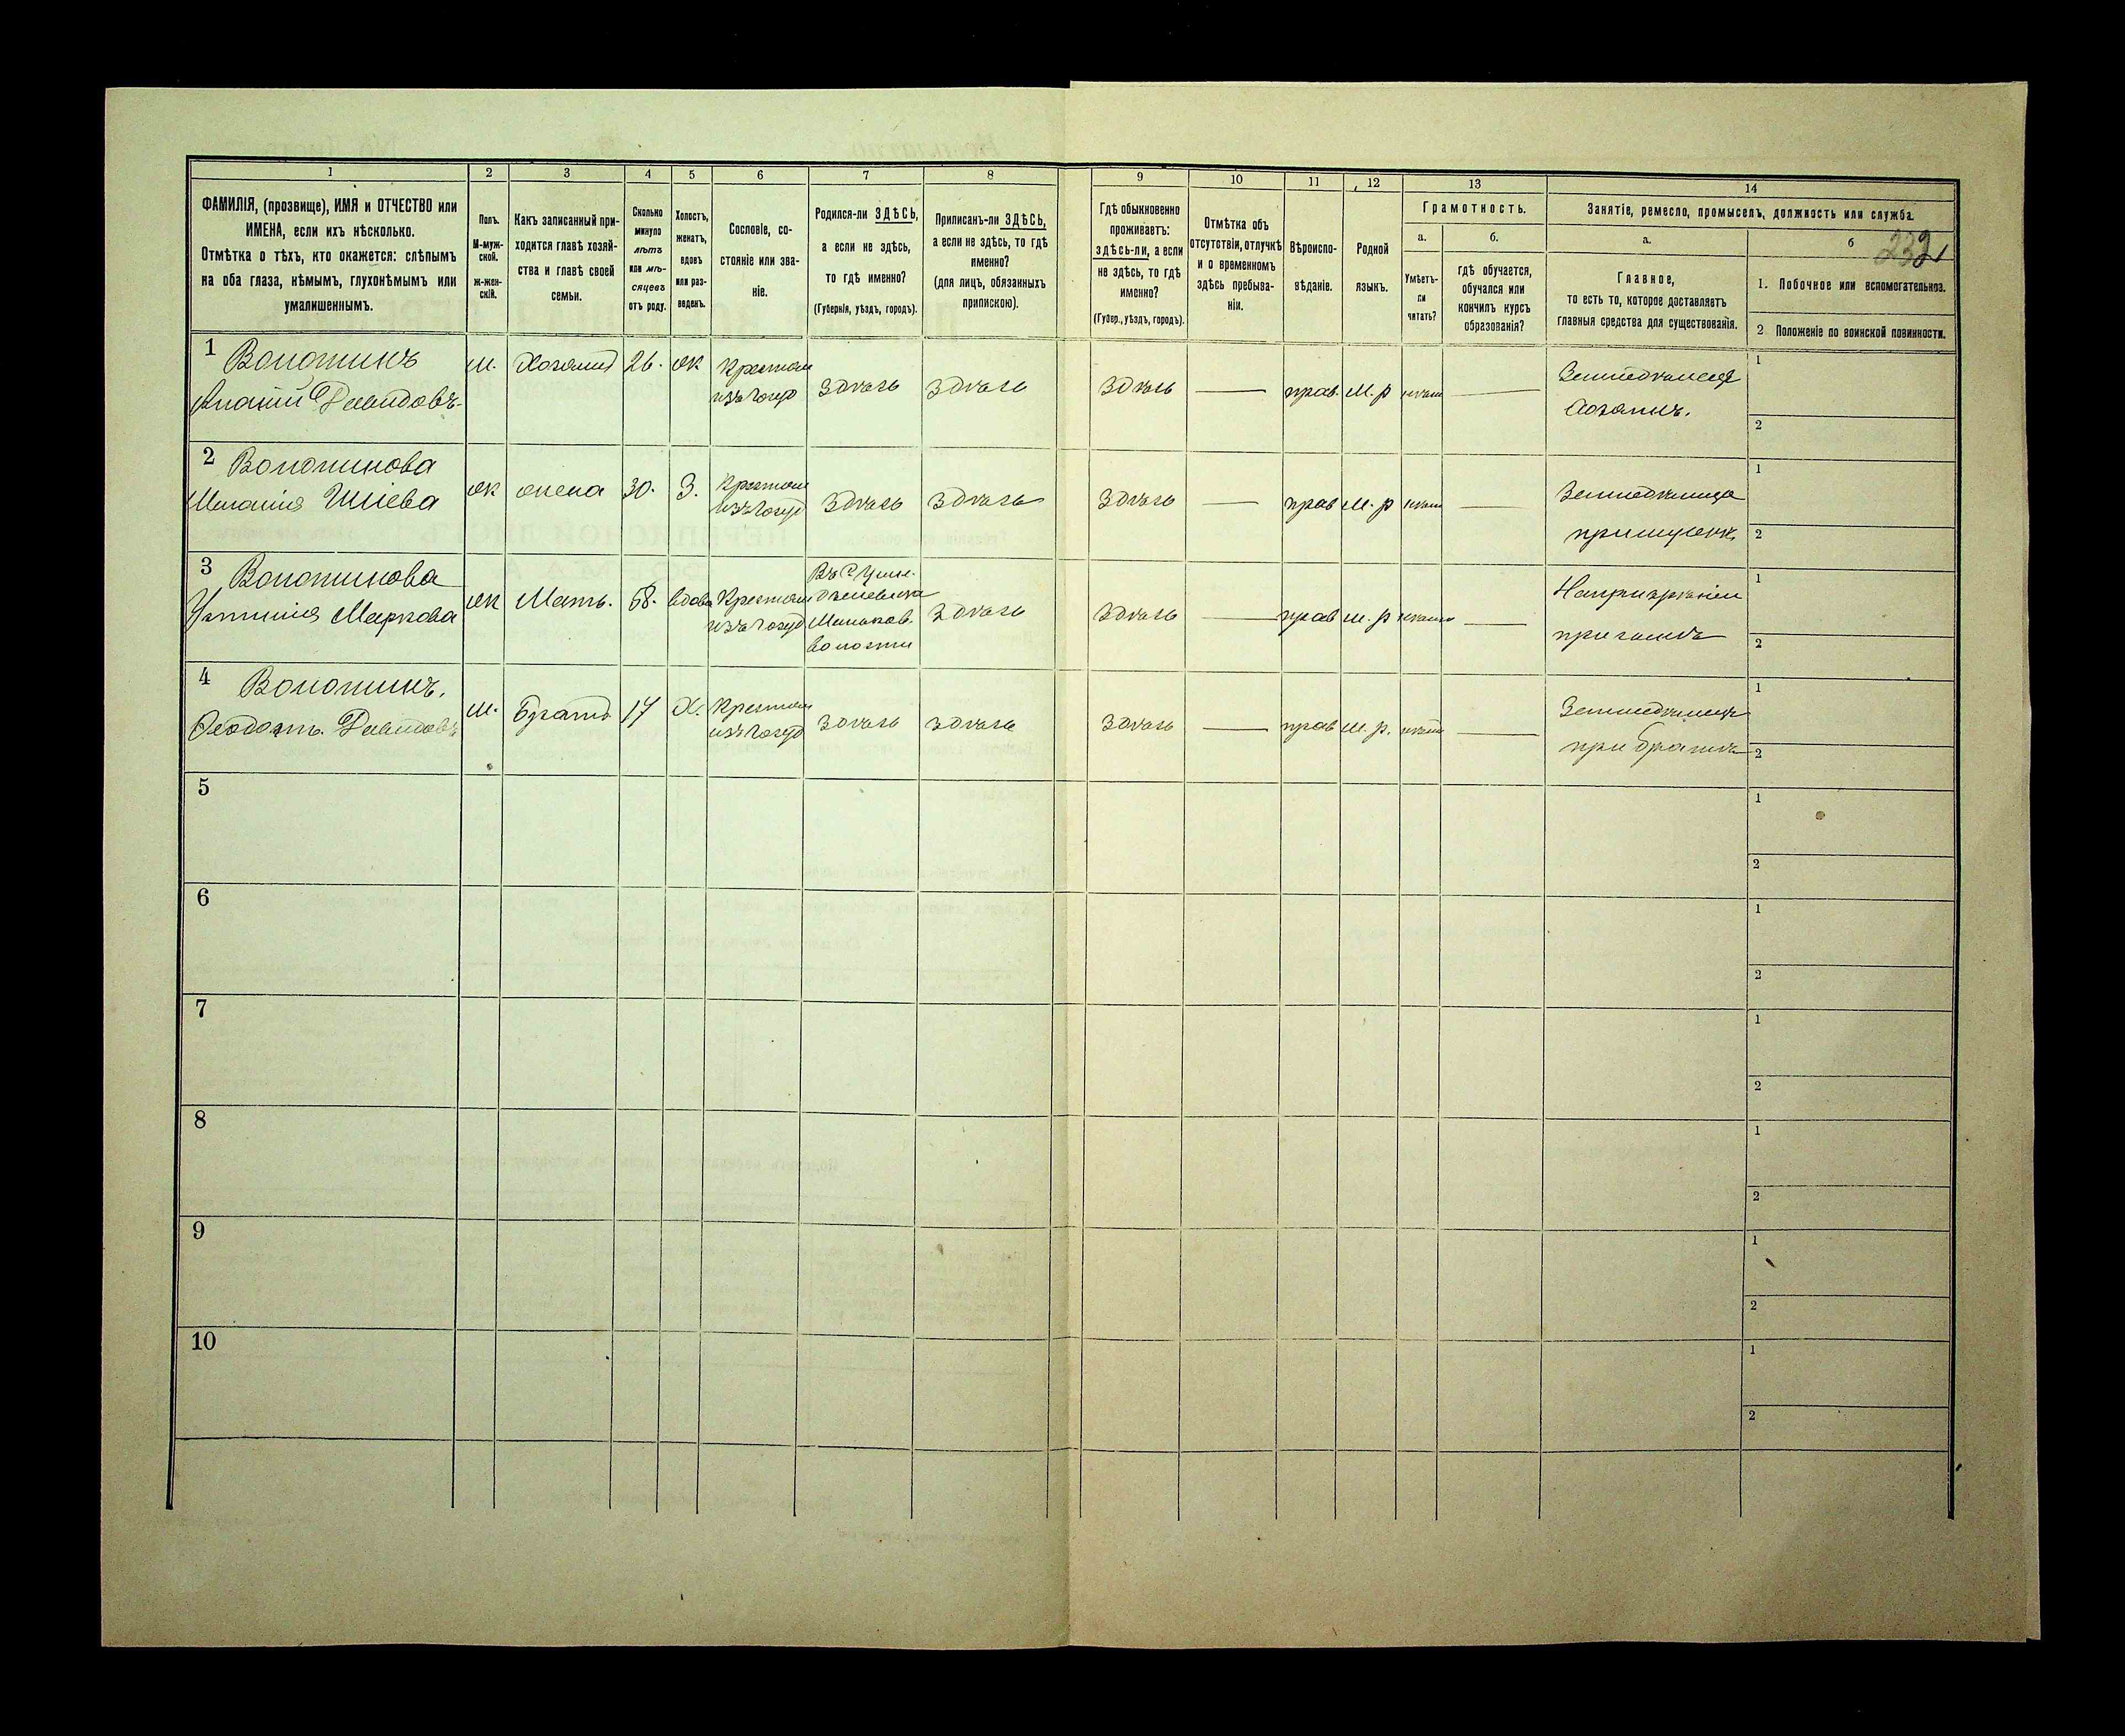 1 2 3 4 5 6 7 8 9 10 11 12 13 14
ФАМИЛІЯ, (прозвище), ИМЯ и ОТЧЕСТВО или
ИМЕНА, если ихъ нѣсколько.
Отмѣтка о тѣхъ, кто окажется: слѣпымъ
на оба глаза, нѣмымъ, глухонѣмымъ или
умалишеннымъ.
Полъ.
М-муж-
ской.
ж-жен-
скій.
Какъ записанный при-
ходится главѣ хозяй-
ства и главѣ своей
семьи.
Сколько
минуло
лѣтъ
или мѣ-
сяцевъ
отъ роду.
Холостъ,
женатъ,
вдовъ
или раз-
веденъ.
Сословіе, со-
стояніе или зва-
ніе.
Родился-ли ЗДѢСЬ,
а если не здѣсь,
то гдѣ именно?
(Губернія, уѣздъ, городъ).
Приписанъ-ли ЗДѢСЬ,
а если не здѣсь, то гдѣ
именно?
(для лицъ, обязанныхъ
припискою).
Гдѣ обыкновенно
проживаетъ:
здѣсь-ли, а если
не здѣсь, то гдѣ
именно?
(Губер., уѣздъ, городъ).
Отмѣтка объ
отсутствіи, отлучкѣ
и о временномъ
здѣсь пребыва-
ніи.
Вѣроиспо-
вѣданіе.
Родной
языкъ.
Грамотность.
а.
Умѣетъ-
ли
читать?
б.
гдѣ обучается,
обучался или
кончилъ курсъ
образованія?
Занятіе, ремесло, промыселъ, должность или служба.
а.
Главное,
то есть то, которое доставляетъ
главныя средства для существованія.
б
232
1. Побочное или вспомогательное.
2 Положеніе по воинской повинности.
1 Волотинъ
Давидовъ
м. Хозяинъ 26. ж Крестьян
изъ госуд
здѣсь здѣсь здѣсь — прав. м.р нѣтъ —
Земледѣлецъ
хозяинъ.
1
2
2 Волотинова
Меланія Ильева
ж жена 30. З. Крестьян
изъ госуд
здѣсь здѣсь здѣсь — прав м.р нѣтъ —
Земледѣлица
при мужѣ
1
2
3 Волотинова
Маркова
ж Мать. 58. вдова Крестьян
изъ госуд
Маньков.
волости
здѣсь здѣсь — прав м.р нѣтъ —
На призрѣніи
при сынѣ
1
2
4 Волотинъ.
Ѳеодотъ Давидовъ
м. Братъ 17 Х. Крестьян
изъ госуд
здѣсь здѣсь здѣсь — прав м.р. нѣтъ —
Земледѣлецъ
при братѣ
1
2
5
1
2
6
1
2
7
1
2
8
1
2
9
1
2
10
1
2